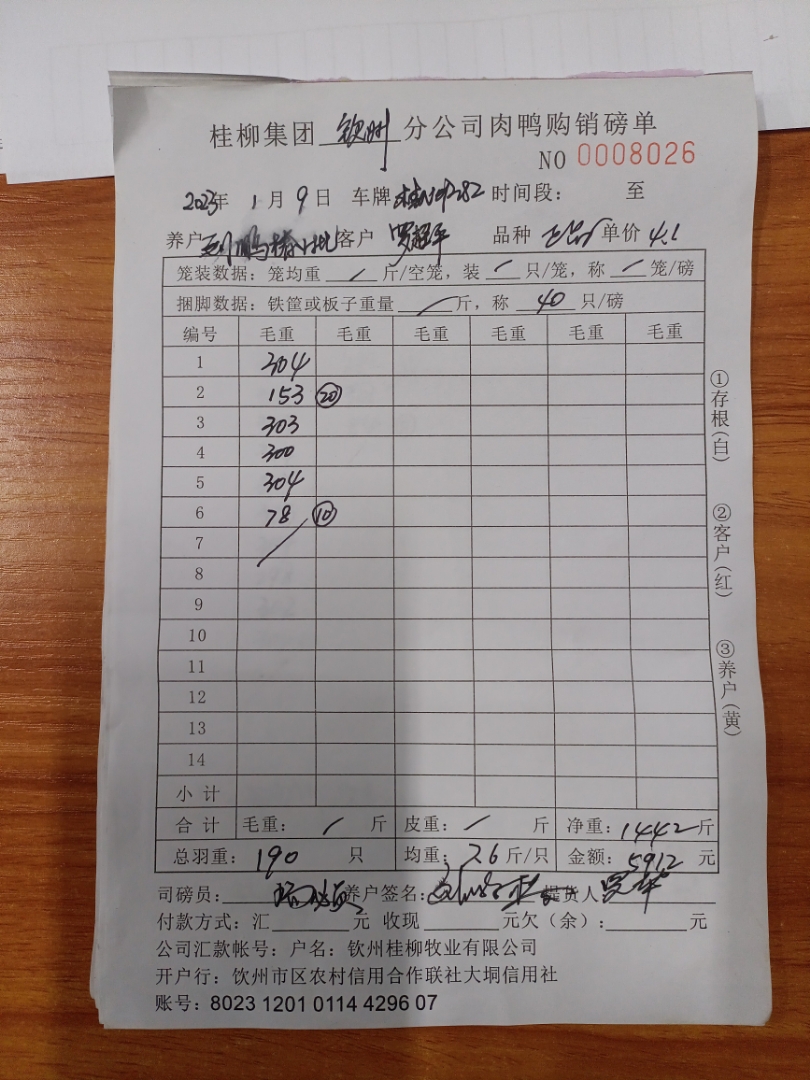 桂柳集团 钦州 分公司肉鸭购销磅单
NO 0008026
2023年 1月9日 车牌 时间段: 至
养户 客户 罗超平 品种 单价 4.1
笼装数据:笼均重 / 斤/空笼,装 / 只/笼,称 / 笼/磅
捆脚数据:铁筐或板子重量 / 斤,称 40 只/磅
编号 毛重 毛重 毛重 毛重 毛重
1 304
2 153 ⑳
3 303
4 300
5 304
6 78 ⑩
7 /
8
9
10
11
12
13
14
小计
合计 毛重: / 斤 皮重: / 斤 净重: 1442斤
总羽重: 190 只 均重: 7.6斤/只 金额: 5912 元
司磅员: 养户签名: 提货人
付款方式:汇 元 收现 元欠(余): 元
公司汇款帐号:户名:钦州桂柳牧业有限公司
开户行:饮州市区农村信用合作联社大垌信用社
账号:8023 1201 0114 4296 07
①存根(白)
②客户(红)
③养户(黄)